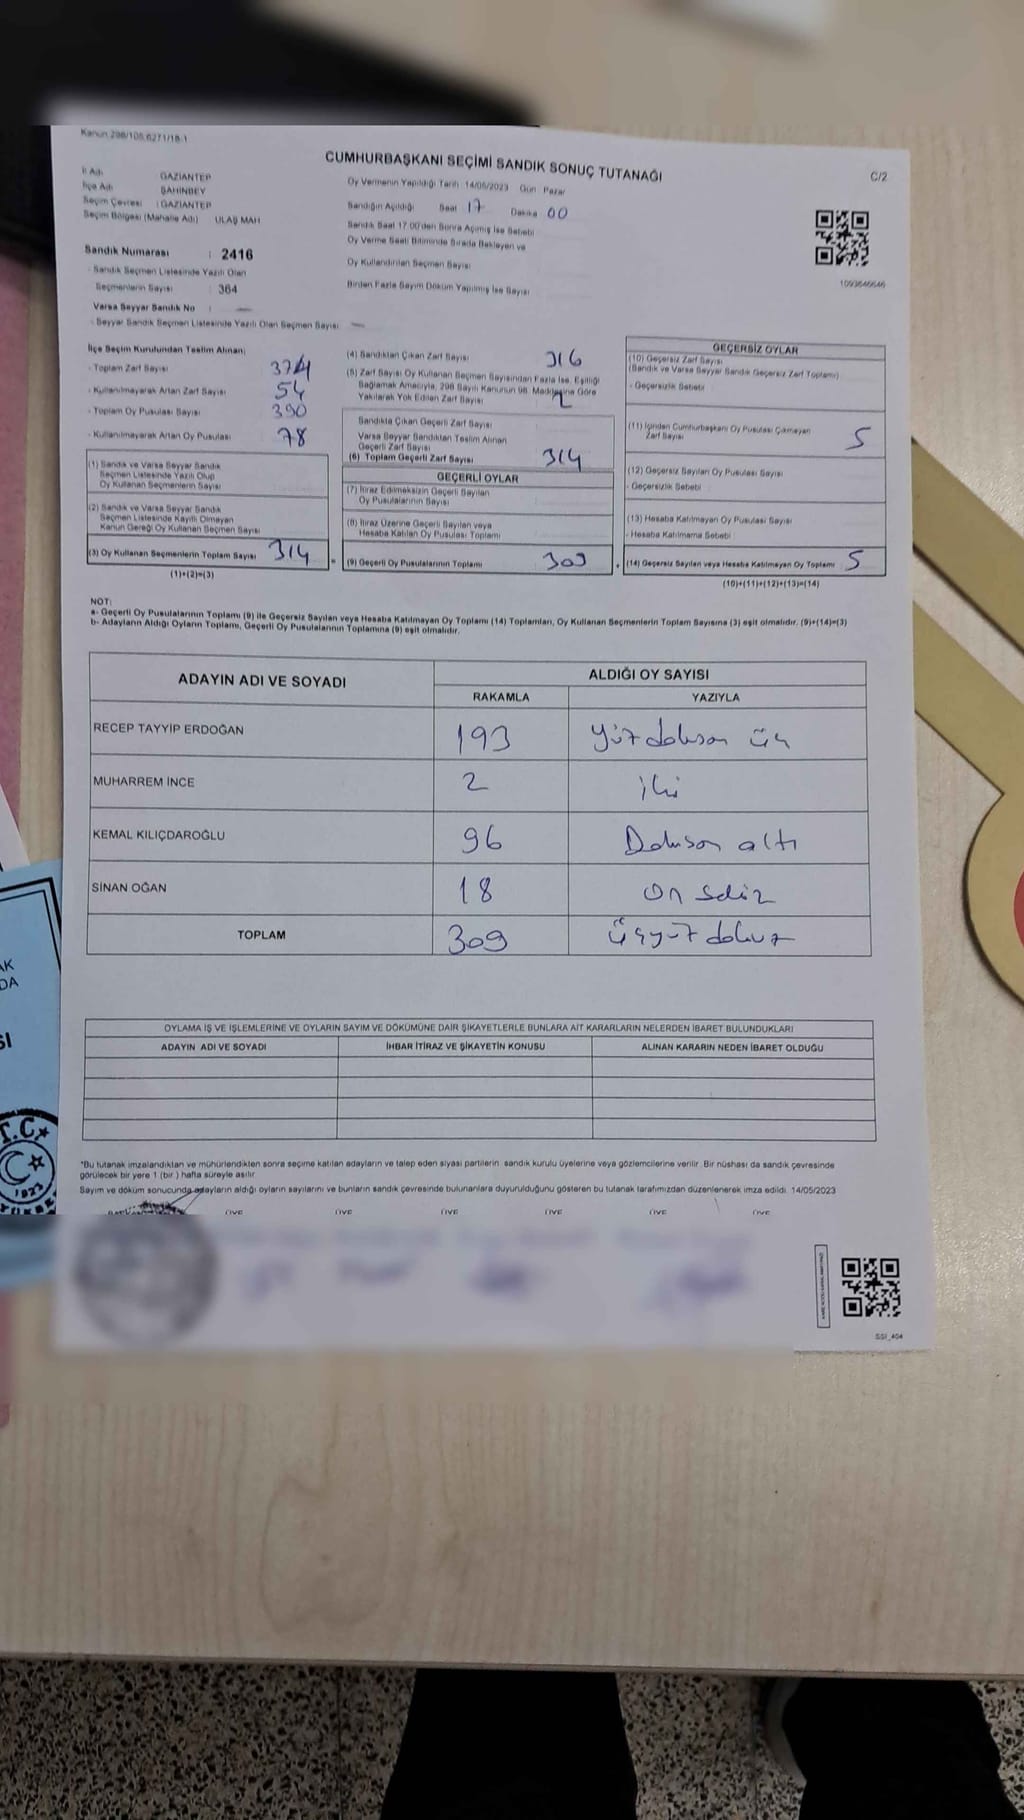 Kanun:298/105,6271/18.1
CUMHURBAŞKANI SEÇİMİ SANDIK SONUÇ TUTANAĞI
C/2
İl Adı GAZİANTEP
İlçe Adı ŞAHİNBEY
Seçim Çevresi : GAZİANTEP
Seçim Bölgesi (Mahalle Adı) ULAŞ MAH
Oy Vermenin Yapıldığı Tarih 14/05/2023 Gün Pazar
Sandığın Açıldığı Saat 17 Dakika 00
Sandık Saat 17:00'den Sonra Açılmış İse Sebebi
Oy Verme Saati Bitiminde Sırada Bekleyen ve
Oy Kullandırılan Seçmen Sayısı
Birden Fazla Sayım Döküm Yapılmış İse Sayısı
Sandık Numarası : 2416
- Sandık Seçmen Listesinde Yazılı Olan
Seçmenlerin Sayısı : 364
Varsa Seyyar Sandık No : —
- Seyyar Sandık Seçmen Listesinde Yazılı Olan Seçmen Sayısı : —
1093646646
İlçe Seçim Kurulundan Teslim Alınan;
- Toplam Zarf Sayısı 374
- Kullanılmayarak Artan Zarf Sayısı 54
- Toplam Oy Pusulası Sayısı 390
- Kullanılmayarak Artan Oy Pusulası 78
(1) Sandık ve Varsa Seyyar Sandık
Seçmen Listesinde Yazılı Olup
Oy Kullanan Seçmenlerin Sayısı
(2) Sandık ve Varsa Seyyar Sandık
Seçmen Listesinde Kayıtlı Olmayan
Kanun Gereği Oy Kullanan Seçmen Sayısı
(3) Oy Kullanan Seçmenlerin Toplam Sayısı 314
(1)+(2)=(3)
=
(4) Sandıktan Çıkan Zarf Sayısı 316
(5) Zarf Sayısı Oy Kullanan Seçmen Sayısından Fazla İse, Eşitliği
Sağlamak Amacıyla, 298 Sayılı Kanunun 98. Maddesine Göre
Yakılarak Yok Edilen Zarf Sayısı 2
Sandıkta Çıkan Geçerli Zarf Sayısı
Varsa Seyyar Sandıktan Teslim Alınan
Geçerli Zarf Sayısı
(6) Toplam Geçerli Zarf Sayısı 314
GEÇERLİ OYLAR
(7) İtiraz Edilmeksizin Geçerli Sayılan
Oy Pusulalarının Sayısı
(8) İtiraz Üzerine Geçerli Sayılan veya
Hesaba Katılan Oy Pusulası Toplamı
(9) Geçerli Oy Pusulalarının Toplamı 309
+
GEÇERSİZ OYLAR
(10) Geçersiz Zarf Sayısı
(Sandık ve Varsa Seyyar Sandık Geçersiz Zarf Toplamı)
- Geçersizlik Sebebi
(11) İçinden Cumhurbaşkanı Oy Pusulası Çıkmayan
Zarf Sayısı 5
(12) Geçersiz Sayılan Oy Pusulası Sayısı
- Geçersizlik Sebebi
(13) Hesaba Katılmayan Oy Pusulası Sayısı
- Hesaba Katılmama Sebebi
(14) Geçersiz Sayılan veya Hesaba Katılmayan Oy Toplamı 5
(10)+(11)+(12)+(13)=(14)
NOT:
a- Geçerli Oy Pusulalarının Toplamı (9) ile Geçersiz Sayılan veya Hesaba Katılmayan Oy Toplamı (14) Toplamları, Oy Kullanan Seçmenlerin Toplam Sayısına (3) eşit olmalıdır. (9)+(14)=(3)
b- Adayların Aldığı Oyların Toplamı, Geçerli Oy Pusulalarının Toplamına (9) eşit olmalıdır.
ADAYIN ADI VE SOYADI ALDIĞI OY SAYISI
RAKAMLA YAZIYLA
RECEP TAYYİP ERDOĞAN 193 yüz doksan üç
MUHARREM İNCE 2 iki
KEMAL KILIÇDAROĞLU 96 Doksan altı
SİNAN OĞAN 18 On sekiz
TOPLAM 309 üçyüz dokuz
OYLAMA İŞ VE İŞLEMLERİNE VE OYLARIN SAYIM VE DÖKÜMÜNE DAİR ŞİKAYETLERLE BUNLARA AİT KARARLARIN NELERDEN İBARET BULUNDUKLARI
ADAYIN ADI VE SOYADI İHBAR İTİRAZ VE ŞİKAYETİN KONUSU ALINAN KARARIN NEDEN İBARET OLDUĞU
*Bu tutanak imzalandıktan ve mühürlendikten sonra seçime katılan adayların ve talep eden siyasi partilerin sandık kurulu üyelerine veya gözlemcilerine verilir. Bir nüshası da sandık çevresinde
görülecek bir yere 1 (bir ) hafta süreyle asılır.
Sayım ve döküm sonucunda adayların aldığı oyların sayılarını ve bunların sandık çevresinde bulunanlara duyurulduğunu gösteren bu tutanak tarafımızdan düzenlenerek imza edildi. 14/05/2023
ÜYE ÜYE ÜYE ÜYE ÜYE ÜYE
SSI_404
AK
DA
SI
T.C.
1923